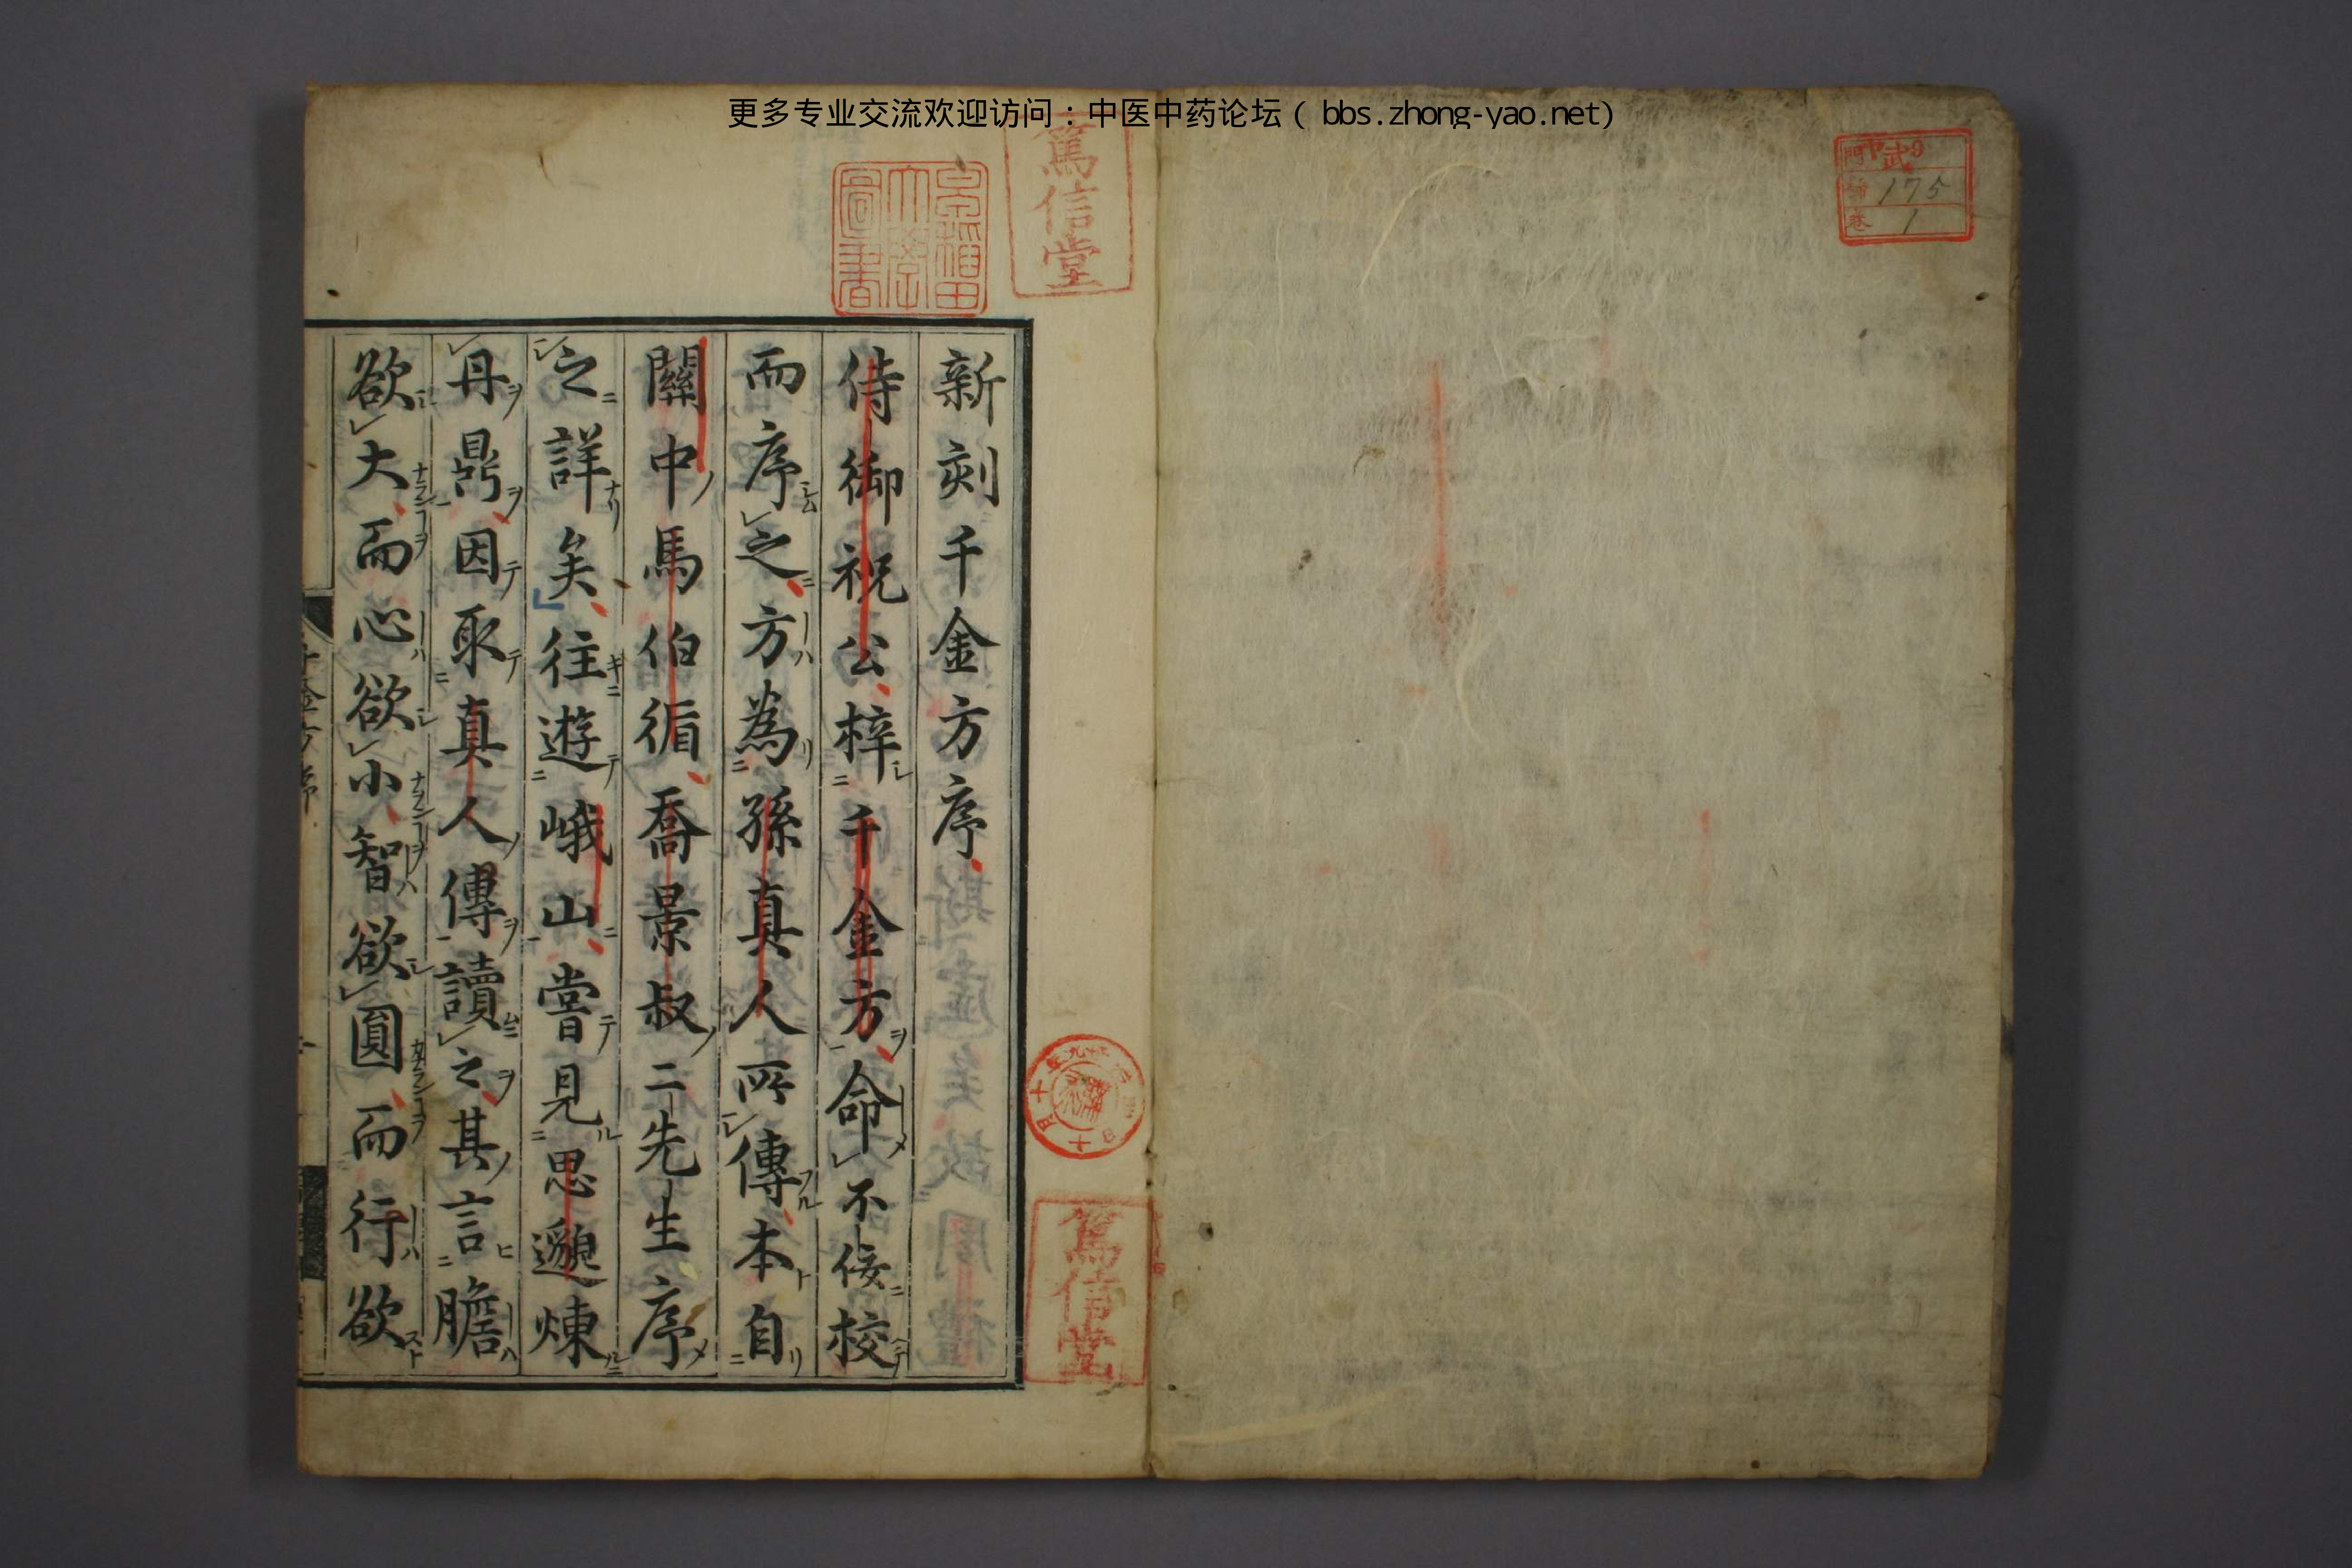 更多专业交流欢迎访问：中医中药论坛（ bbs.zhong-yao.net)
武9
175
卷 1
篤信堂
早稲田大學圖書
新刻千金方序
侍御祝公梓千金方命不佞校
而序之方為孫真人所傳本自
關中馬伯循喬景叔二先生序
之詳矣往遊峨山嘗見思邈煉
丹鼎因取真人傳讀之其言膽
欲大而心欲小智欲圓而行欲
篤信堂